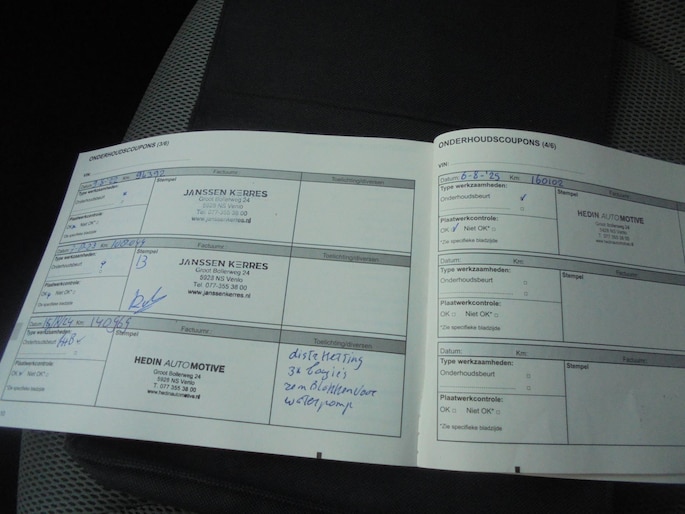 ONDERHOUDSCOUPONS (3/6)
VIN:
Datum: Km: 96392
Factuurnr.: Toelichting/diversen
Type werkzaamheden: Stempel
Onderhoudsbeurt
JANSSEN KERRES
Groot Bollerweg 24
5928 NS Venlo
Tel. 077-355 38 00
www.janssenkerres.nl
Plaatwerkcontrole:
OK Niet OK*
*Zie specifieke bladzijde
Datum: Km:
Factuurnr.: Toelichting/diversen
Type werkzaamheden: Stempel
Onderhoudsbeurt
13
JANSSEN KERRES
Groot Bollerweg 24
5928 NS Venlo
Tel. 077-355 38 00
www.janssenkerres.nl
Plaatwerkcontrole:
OK Niet OK*
*Zie specifieke bladzijde
Datum: Km: 140969
Factuurnr.: Toelichting/diversen
Type werkzaamheden: Stempel
Onderhoudsbeurt
HEDIN AUTOMOTIVE
Groot Bollerweg 24
5928 NS Venlo
T. 077 355 38 00
www.hedinautomotive.nl
distr ketting
3x bougie's
remblokken voor
waterpomp
Plaatwerkcontrole:
OK Niet OK*
*Zie specifieke bladzijde
ONDERHOUDSCOUPONS (4/6)
VIN:
Datum: 6-8-'25 Km: 160102
Type werkzaamheden: Stempel
Onderhoudsbeurt
HEDIN AUTOMOTIVE
Groot Bollerweg 24
5928 NS Venlo
T. 077 355 38 00
www.hedinautomotive.nl
Plaatwerkcontrole:
OK Niet OK*
*Zie specifieke bladzijde
Datum: Km: Factuurnr.:
Type werkzaamheden: Stempel
Onderhoudsbeurt
Plaatwerkcontrole:
OK Niet OK*
*Zie specifieke bladzijde
Datum: Km: Factuurnr.:
Type werkzaamheden: Stempel
Onderhoudsbeurt
Plaatwerkcontrole:
OK Niet OK*
*Zie specifieke bladzijde